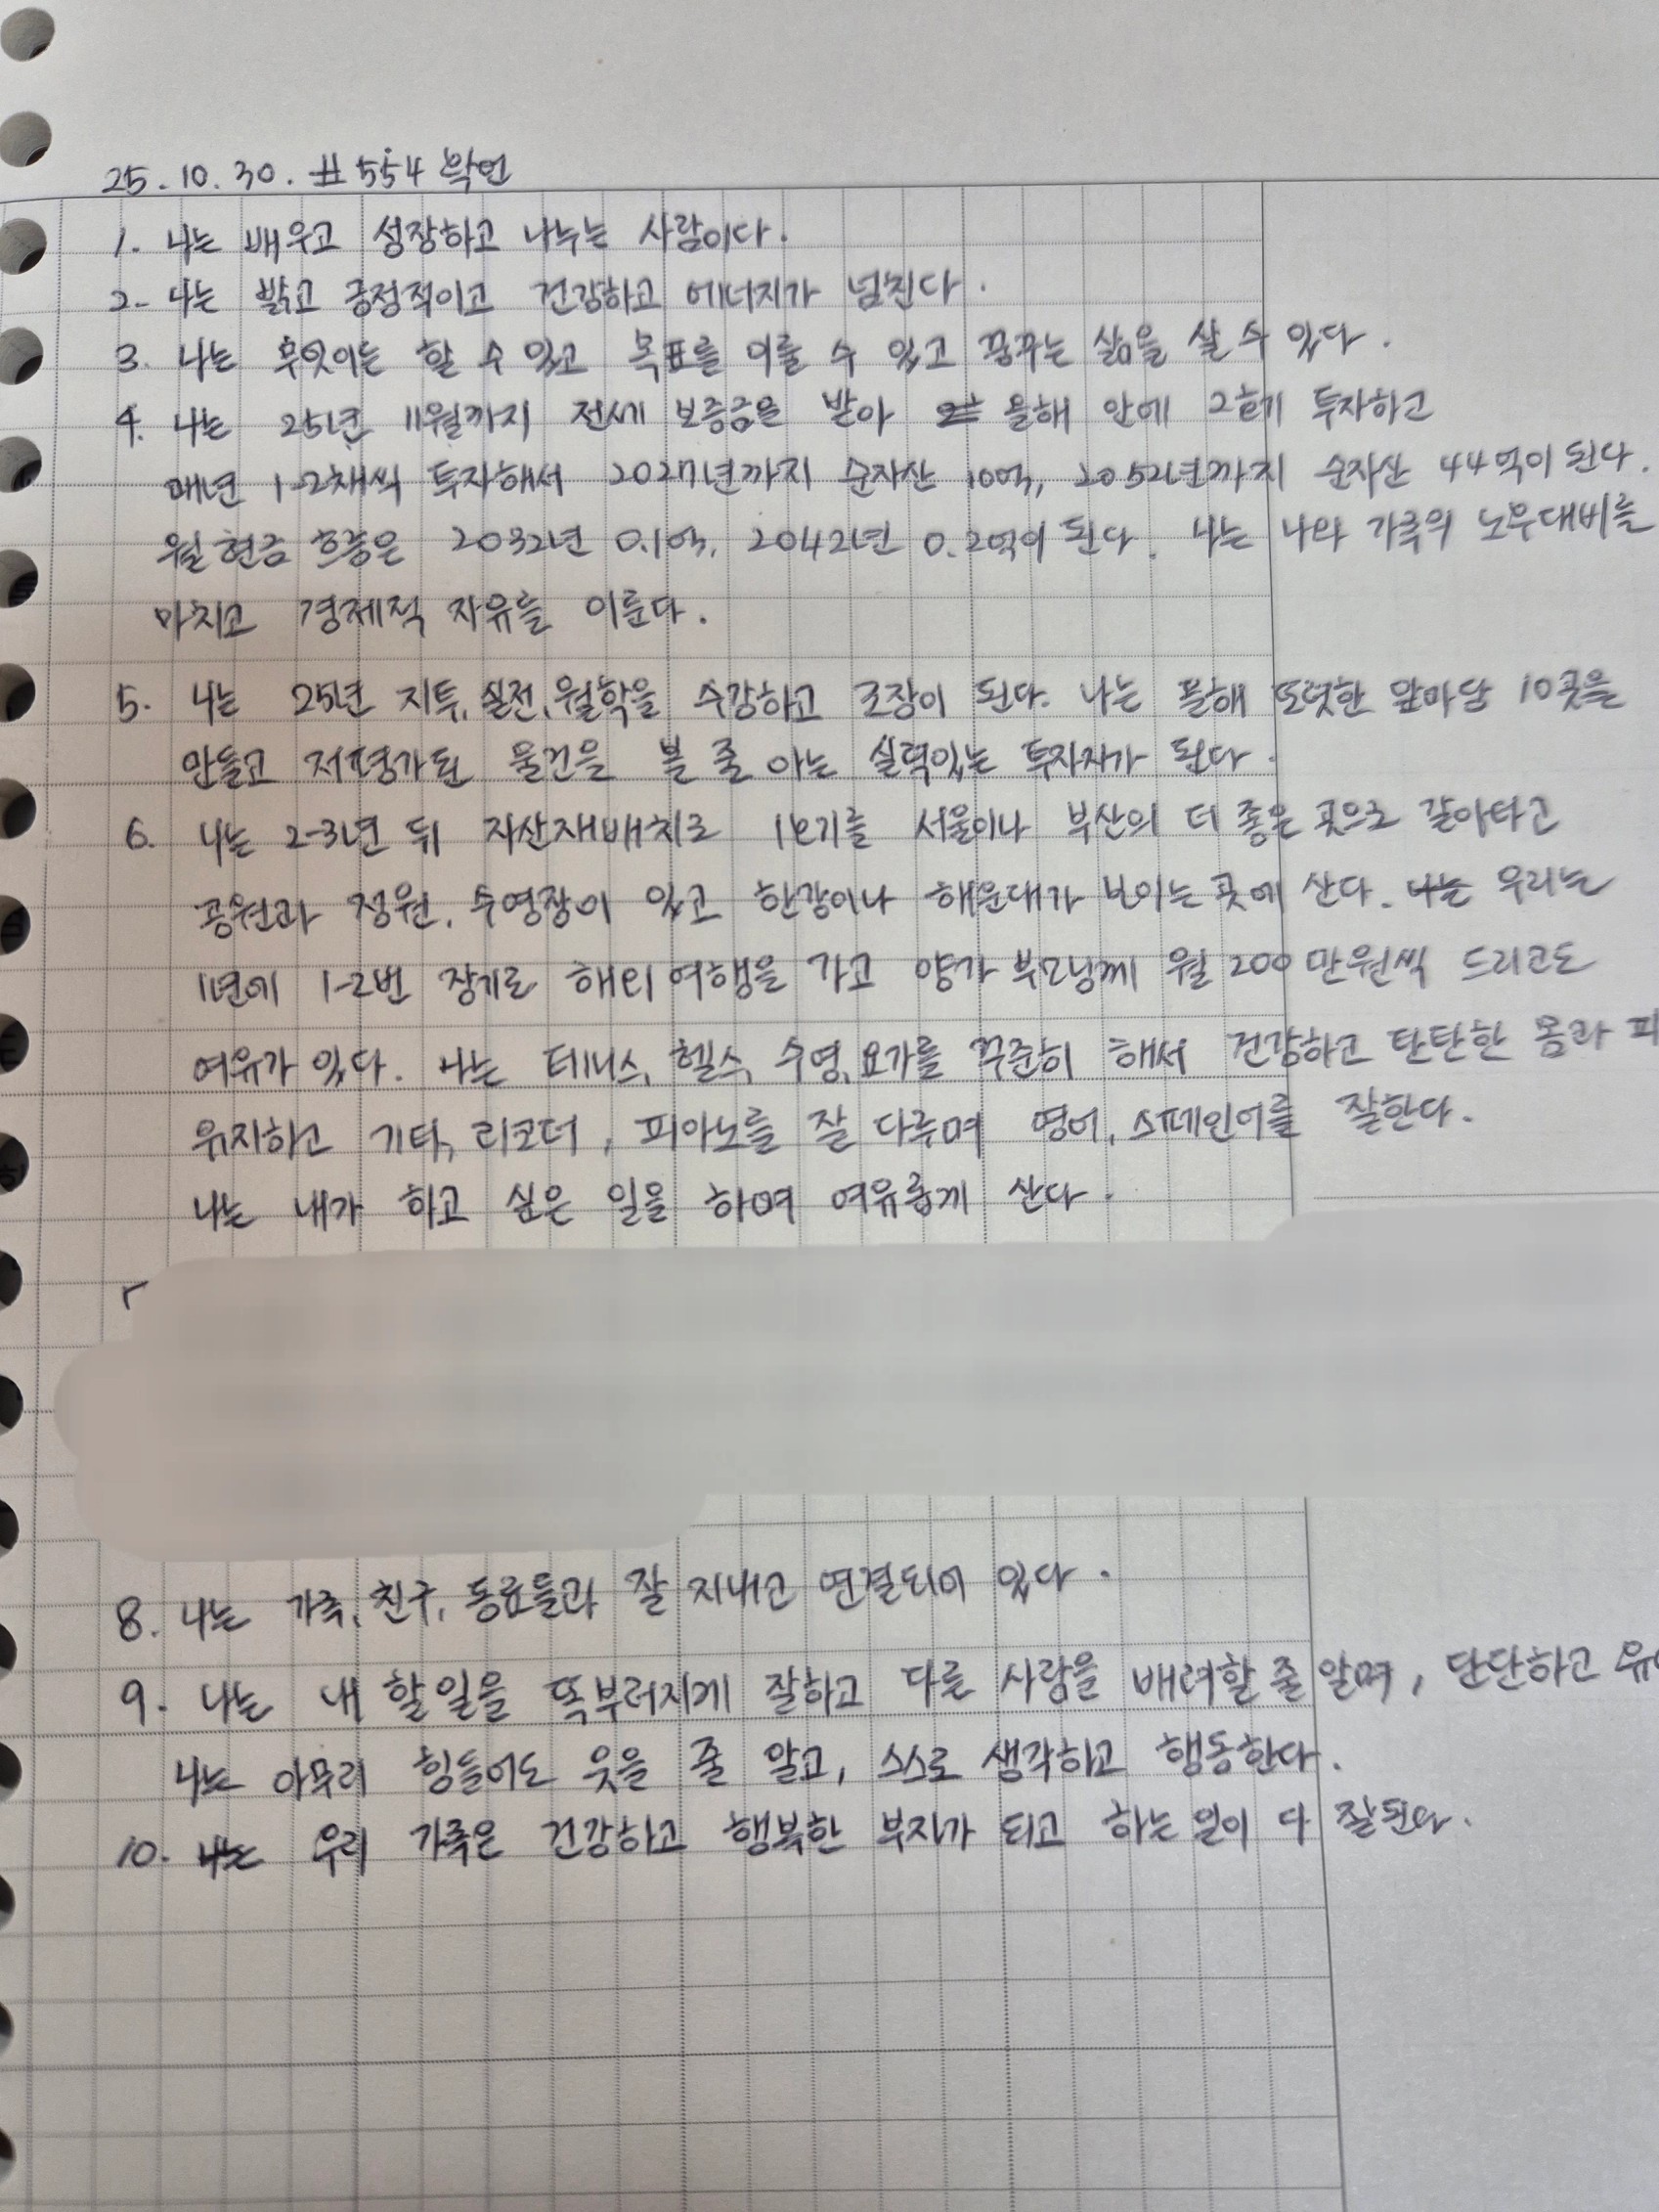 25.10.30. #554 확언
1. 나는 배우고 성장하고 나누는 사람이다.
2. 나는 밝고 긍정적이고 건강하고 에너지가 넘친다.
3. 나는 무엇이든 할 수 있고 목표를 이룰 수 있고 꿈꾸는 삶을 살 수 있다.
4. 나는 25년 11월까지 전세 보증금을 받아 올해 안에 2호기 투자하고
매년 1-2채씩 투자해서 2027년까지 순자산 10억, 2052년까지 순자산 44억이 된다.
월 현금 흐름은 2032년 0.1억, 2042년 0.2억이 된다. 나는 나와 가족의 노후대비를
마치고 경제적 자유를 이룬다.
5. 나는 25년 지투, 실전, 월학을 수강하고 조장이 된다. 나는 올해 또렷한 앞마당 10곳을
만들고 저평가된 물건을 볼 줄 아는 실력있는 투자자가 된다.
6. 나는 2-3년 뒤 자산재배치로 1호기를 서울이나 부산의 더 좋은 곳으로 갈아타고
공원과 정원, 수영장이 있고 한강이나 해운대가 보이는 곳에 산다. 나는 우리는
1년에 1-2번 장기로 해외여행을 가고 양가 부모님께 월 200만원씩 드리고도
여유가 있다. 나는 테니스, 헬스, 수영, 요가를 꾸준히 해서 건강하고 탄탄한 몸과 피
유지하고 기타, 리코더, 피아노를 잘 다루며 영어, 스페인어를 잘한다.
나는 내가 하고 싶은 일을 하며 여유롭게 산다.
8. 나는 가족, 친구, 동료들과 잘 지내고 연결되어 있다.
9. 나는 내 할일을 똑부러지게 잘하고 다른 사람을 배려할 줄 알며, 단단하고 유
나는 아무리 힘들어도 웃을 줄 알고, 스스로 생각하고 행동한다.
10. 나는 우리 가족은 건강하고 행복한 부자가 되고 하는 일이 다 잘된다.